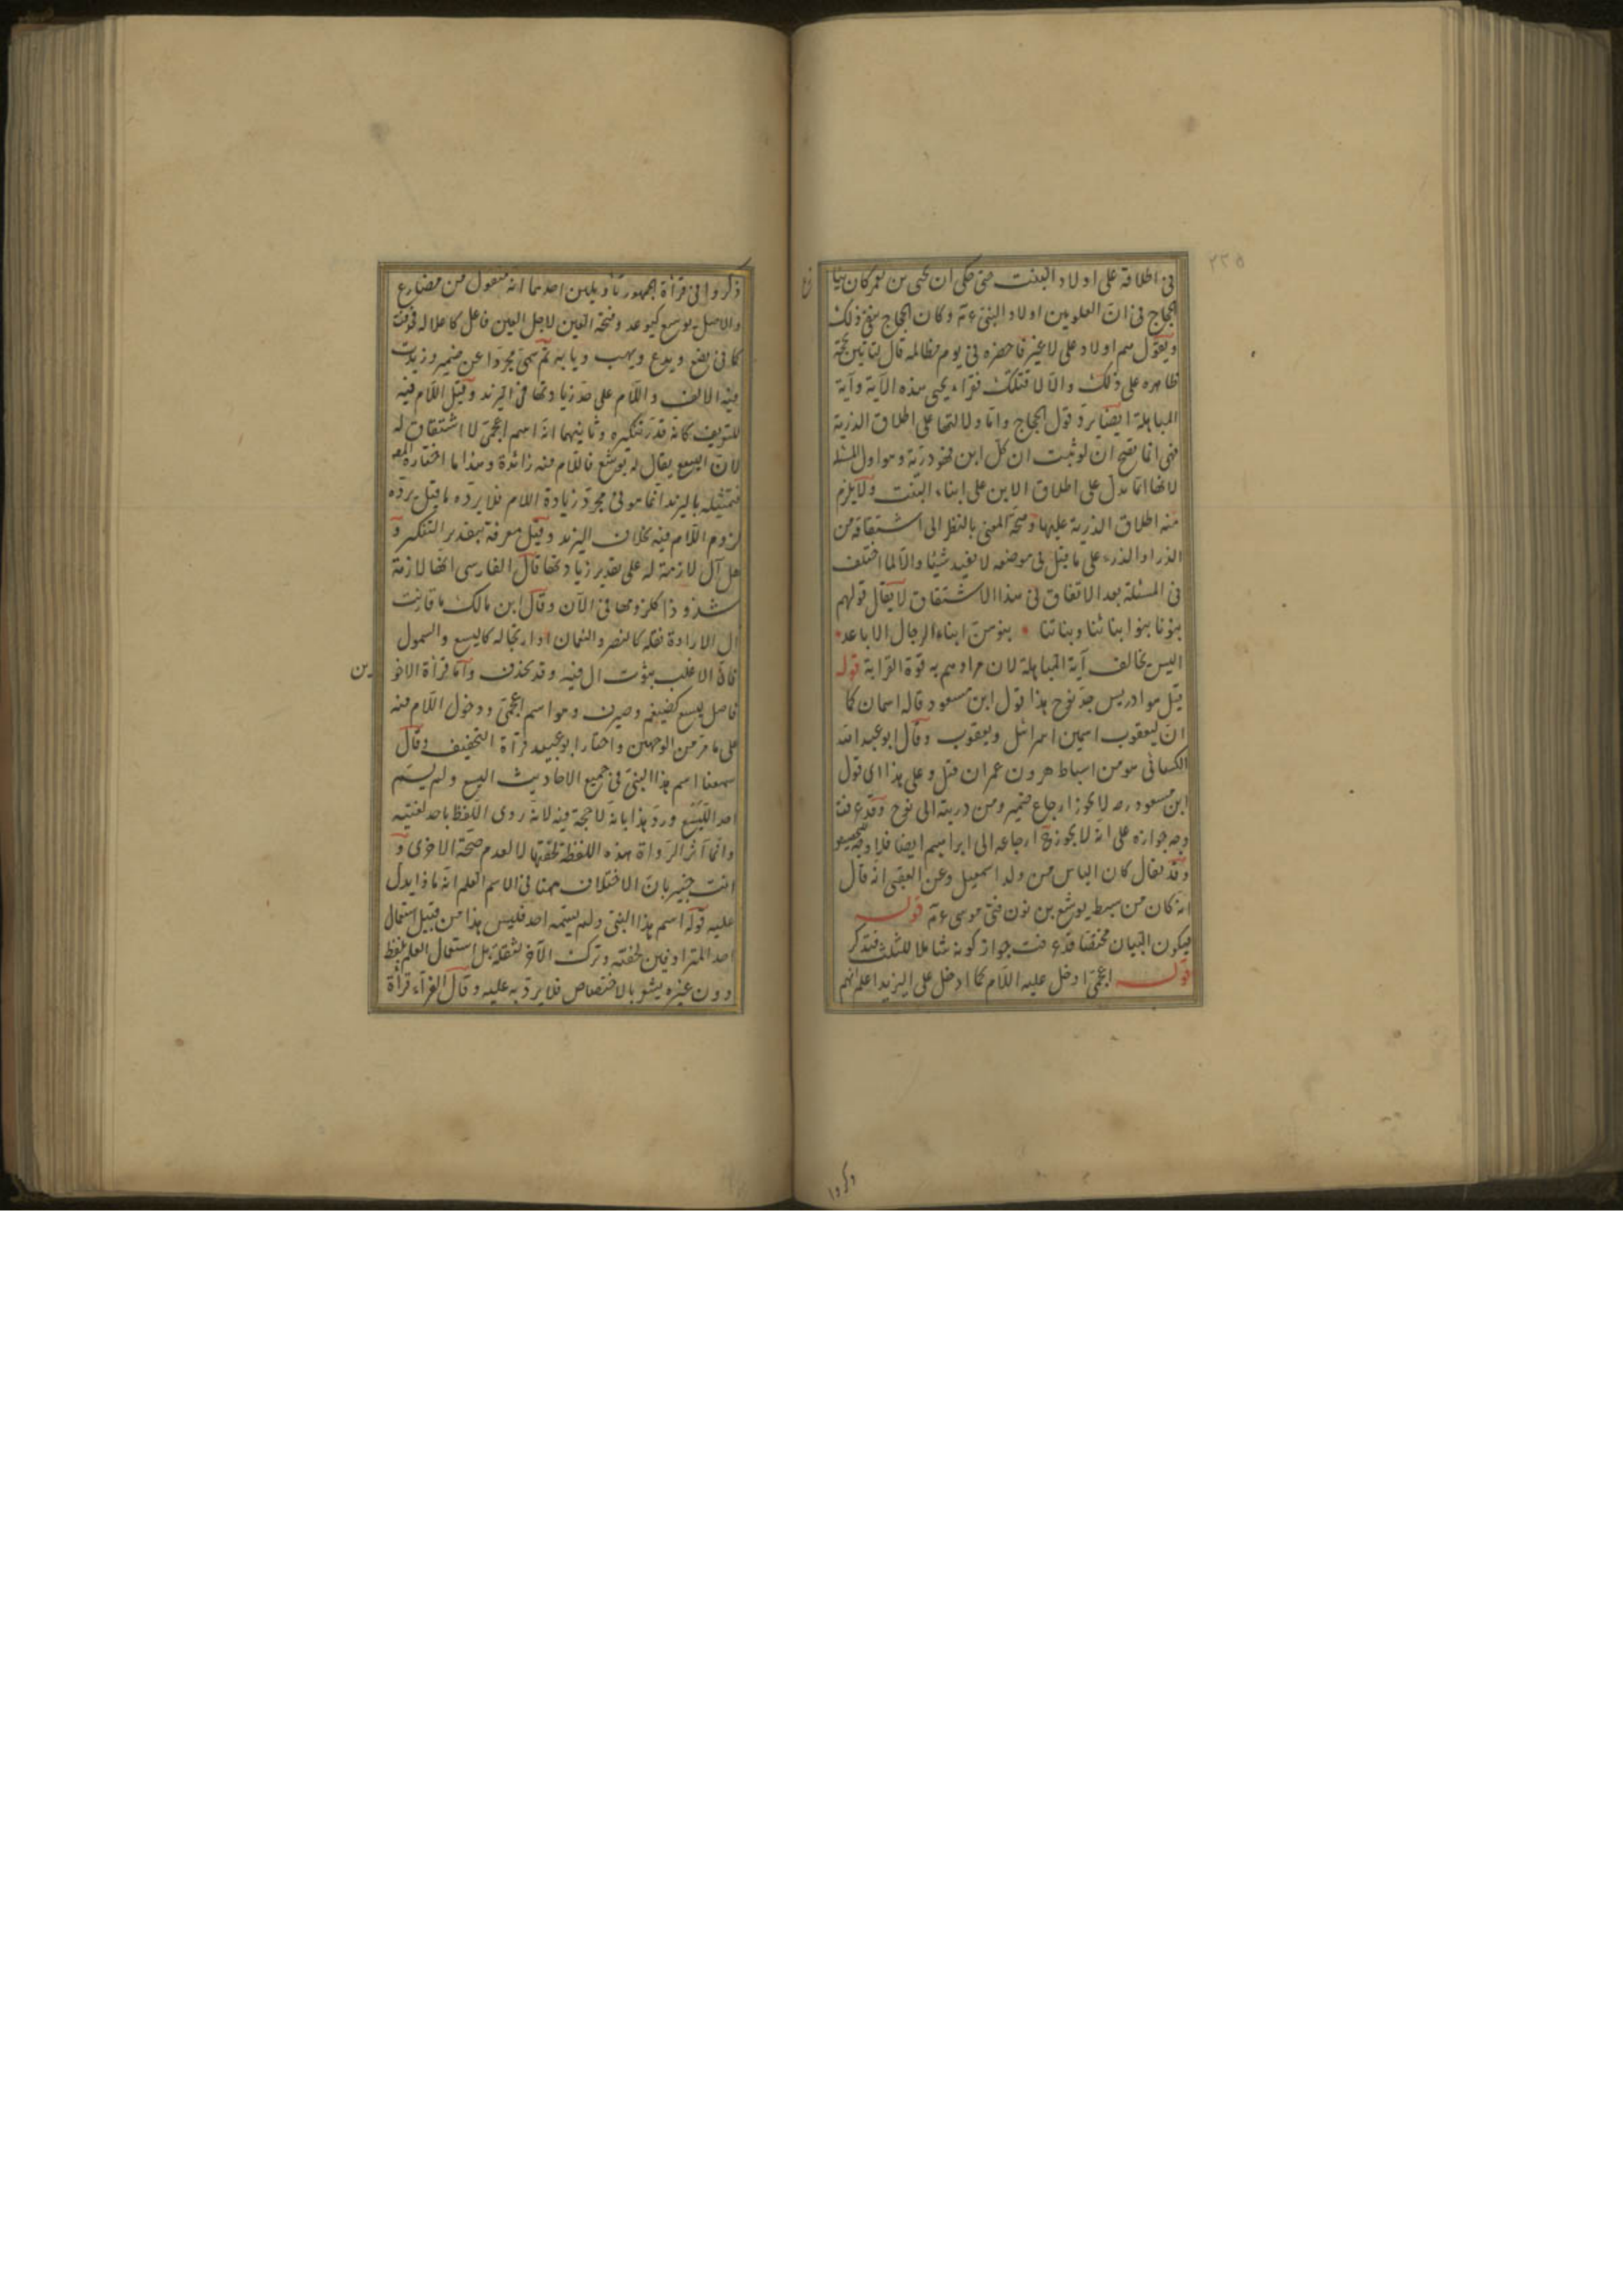 ٢٢٥
في اطلاقه على اولاد البنت حتى حكي ان يحيى بن يعمر كان
الحجاج في ان العلويين اولاد النبي عم وكان الحجاج ينفي ذلك
ويقول هم اولاد علي لا غير فاحضره في يوم مظالمه قال لتاتين بحجة
ظاهرة على ذلك والا لاقتلنك فقرأ يحيى هذه الآية وآية
المباهلة ايضا يرد قول الحجاج واما دلالتها على اطلاق الذرية
فهي انما تصح ان لو ثبت ان كل ابن فهو ذرية وهو اول المسئلة
لانها انما تدل على اطلاق الابن على ابناء البنت ولا يلزم
منه اطلاق الذرية عليها وصحة المعنى بالنظر الى اشتقاقه من
الذر او الذرء على ما قيل في موضعه لا يفيد شيئا والا لما اختلف
في المسئلة بعد الاتفاق في هذا الاشتقاق لا يقال قولهم
بنونا بنوا ابنائنا وبناتنا * بنوهن ابناء الرجال الاباعد *
اليس يخالف آية المباهلة لان مرادهم به قوة القرابة قوله
قيل هو ادريس جد نوح هذا قول ابن مسعود قاله اسمان كما
ان ليعقوب اسمين اسرائيل ويعقوب وقال ابو عبد الله
الكسائي هو من اسباط هرون عمران قيل وعلى هذا اى قول
ابن مسعود رض لا يجوز ارجاع ضمير ومن ذريته الى نوح وقد عرفت
وجه جوازه على انه لا يجوز ح ارجاعه الى ابراهيم ايضا فلا وجه
وقد يقال كان الياس من ولد اسمعيل وعن انه قال
انه كان من سبط يوشع بن نون فتى موسى عم قوله
فيكون البيان مختصا قد عرفت جواز كونه شاملا للثلث فتذكر
قوله اعجمي ادخل عليه اللام كما ادخل على اليزيد اعلم انهم
ذكروا
ذكروا في قرأة الجمهور تأويلين احدهما انه منقول من مضارع
والاصل يوسع كيوعد وفتحة العين لاجل العين فاعل كاعلاله فوقعت
كما في يضع ويدع ويهب وبابه ثم سمي مجردا عن ضمير وزيدت
فيه الالف واللام على حد زيادتها في اليزيد وقيل اللام فيه
للتعريف كانه قدر تنكيره وثانيهما انه اسم اعجمي لا اشتقاق له
لان اليسع يقال له يوشع فاللام فيه زائدة وهذا ما اختاره المص
فتمثيله باليزيد انما هو في مجرد زيادة اللام فلا يرده ما قيل يرده
لزوم اللام فيه بخلاف اليزيد وقيل معرفة بتقدير التنكير و
هل ال لازمة له على تقدير زيادتها قال الفارسي انها لازمة
شذوذا كلزومها في الآن وقال ابن مالك ما قارنت
ال الارادة نقله كالنضر والنعمان او ارتجاله كاليسع والسموأل
فان الاغلب ثبوت ال فيه وقد يحذف واما قرأة الاخو
ين
فاصل ليسع كضيغم وصيرف وهو اسم اعجمي ودخول اللام فيه
على ما مر من الوجهين واختار ابو عبيد قرأة التخفيف وقال
سمعنا اسم هذا النبي في جميع الاحاديث اليسع ولم يسم
احد الليسع ورد هذا بانه لا حجة فيه لانه روى اللفظ باحد لغتيه
وانما آثر الرواة هذه اللفظة لخفتها لا لعدم صحة الاخرى و
انت خبير بان الاختلاف ههنا في الاسم العلم انه ماذا يدل
عليه قوله اسم هذا النبي ولم يسمه احد فليس هذا من قبيل استعمال
احد المترادفين لخفته وترك الآخر لثقله بل استعمال العلم بلفظ
دون غيره يشعر بالاختصاص فلا يرد به عليه وقال الفراء قرأة